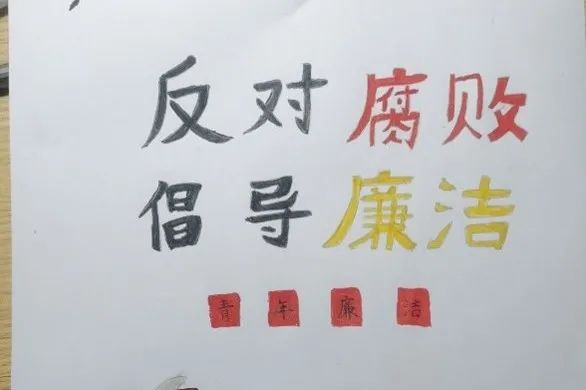 反对腐败
倡导廉洁
青年廉洁